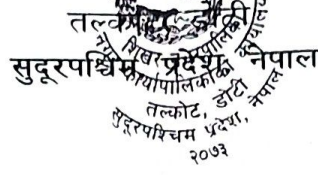 तल्कोट, डोटी
सुदूरपश्चिम प्रदेश, नेपाल
शिखर नगरपालिका
नगर कार्यपालिकाको कार्यालय
तल्कोट, डोटी
सुदूरपश्चिम प्रदेश, नेपाल
२०७३